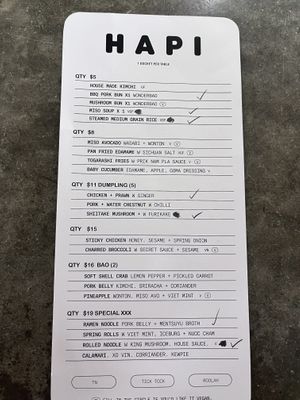 HAPI
1 DOCKET PER TABLE
QTY $5
HOUSE MADE KIMCHI
BBQ PORK BUN X1 WONDERBAO
MUSHROOM BUN X1 WONDERBAO V
MISO SOUP X 1
STEAMED MEDIUM GRAIN RICE
QTY $8
MISO AVOCADO WASABI + WONTON V
PAN FRIED EDAMAME W SICHUAN SALT
TOGARASHI FRIES W PRIK NAM PLA SAUCE V
BABY CUCUMBER EDAMAME, APPLE, GOMA DRESSING
QTY $11 DUMPLING (5)
CHICKEN + PRAWN W GINGER
PORK + WATER CHESTNUT W CHILLI
SHIITAKE MUSHROOM + W FURIKAKE
QTY $15
STICKY CHICKEN HONEY, SESAME + SPRING ONION
CHARRED BROCCOLI W SECRET SAUCE + SESAME
QTY $16 BAO (2)
SOFT SHELL CRAB LEMON PEPPER + PICKLED CARROT
PORK BELLY KIMCHI, SRIRACHA + CORIANDER
PINEAPPLE WONTON, MISO AVO + VIET MINT, V
QTY $19 SPECIAL XXX
RAMEN NOODLE PORK BELLY + MENTSUYU BROTH
SPRING ROLLS W VIET MINT, ICEBURG + NUOC CHAM
ROLLED NOODLE W KING MUSHROOM, HOUSE SAUCE.
CALAMARI. XO VIN. CORRIANDER. KEWPIE
TN
TICK TOCK